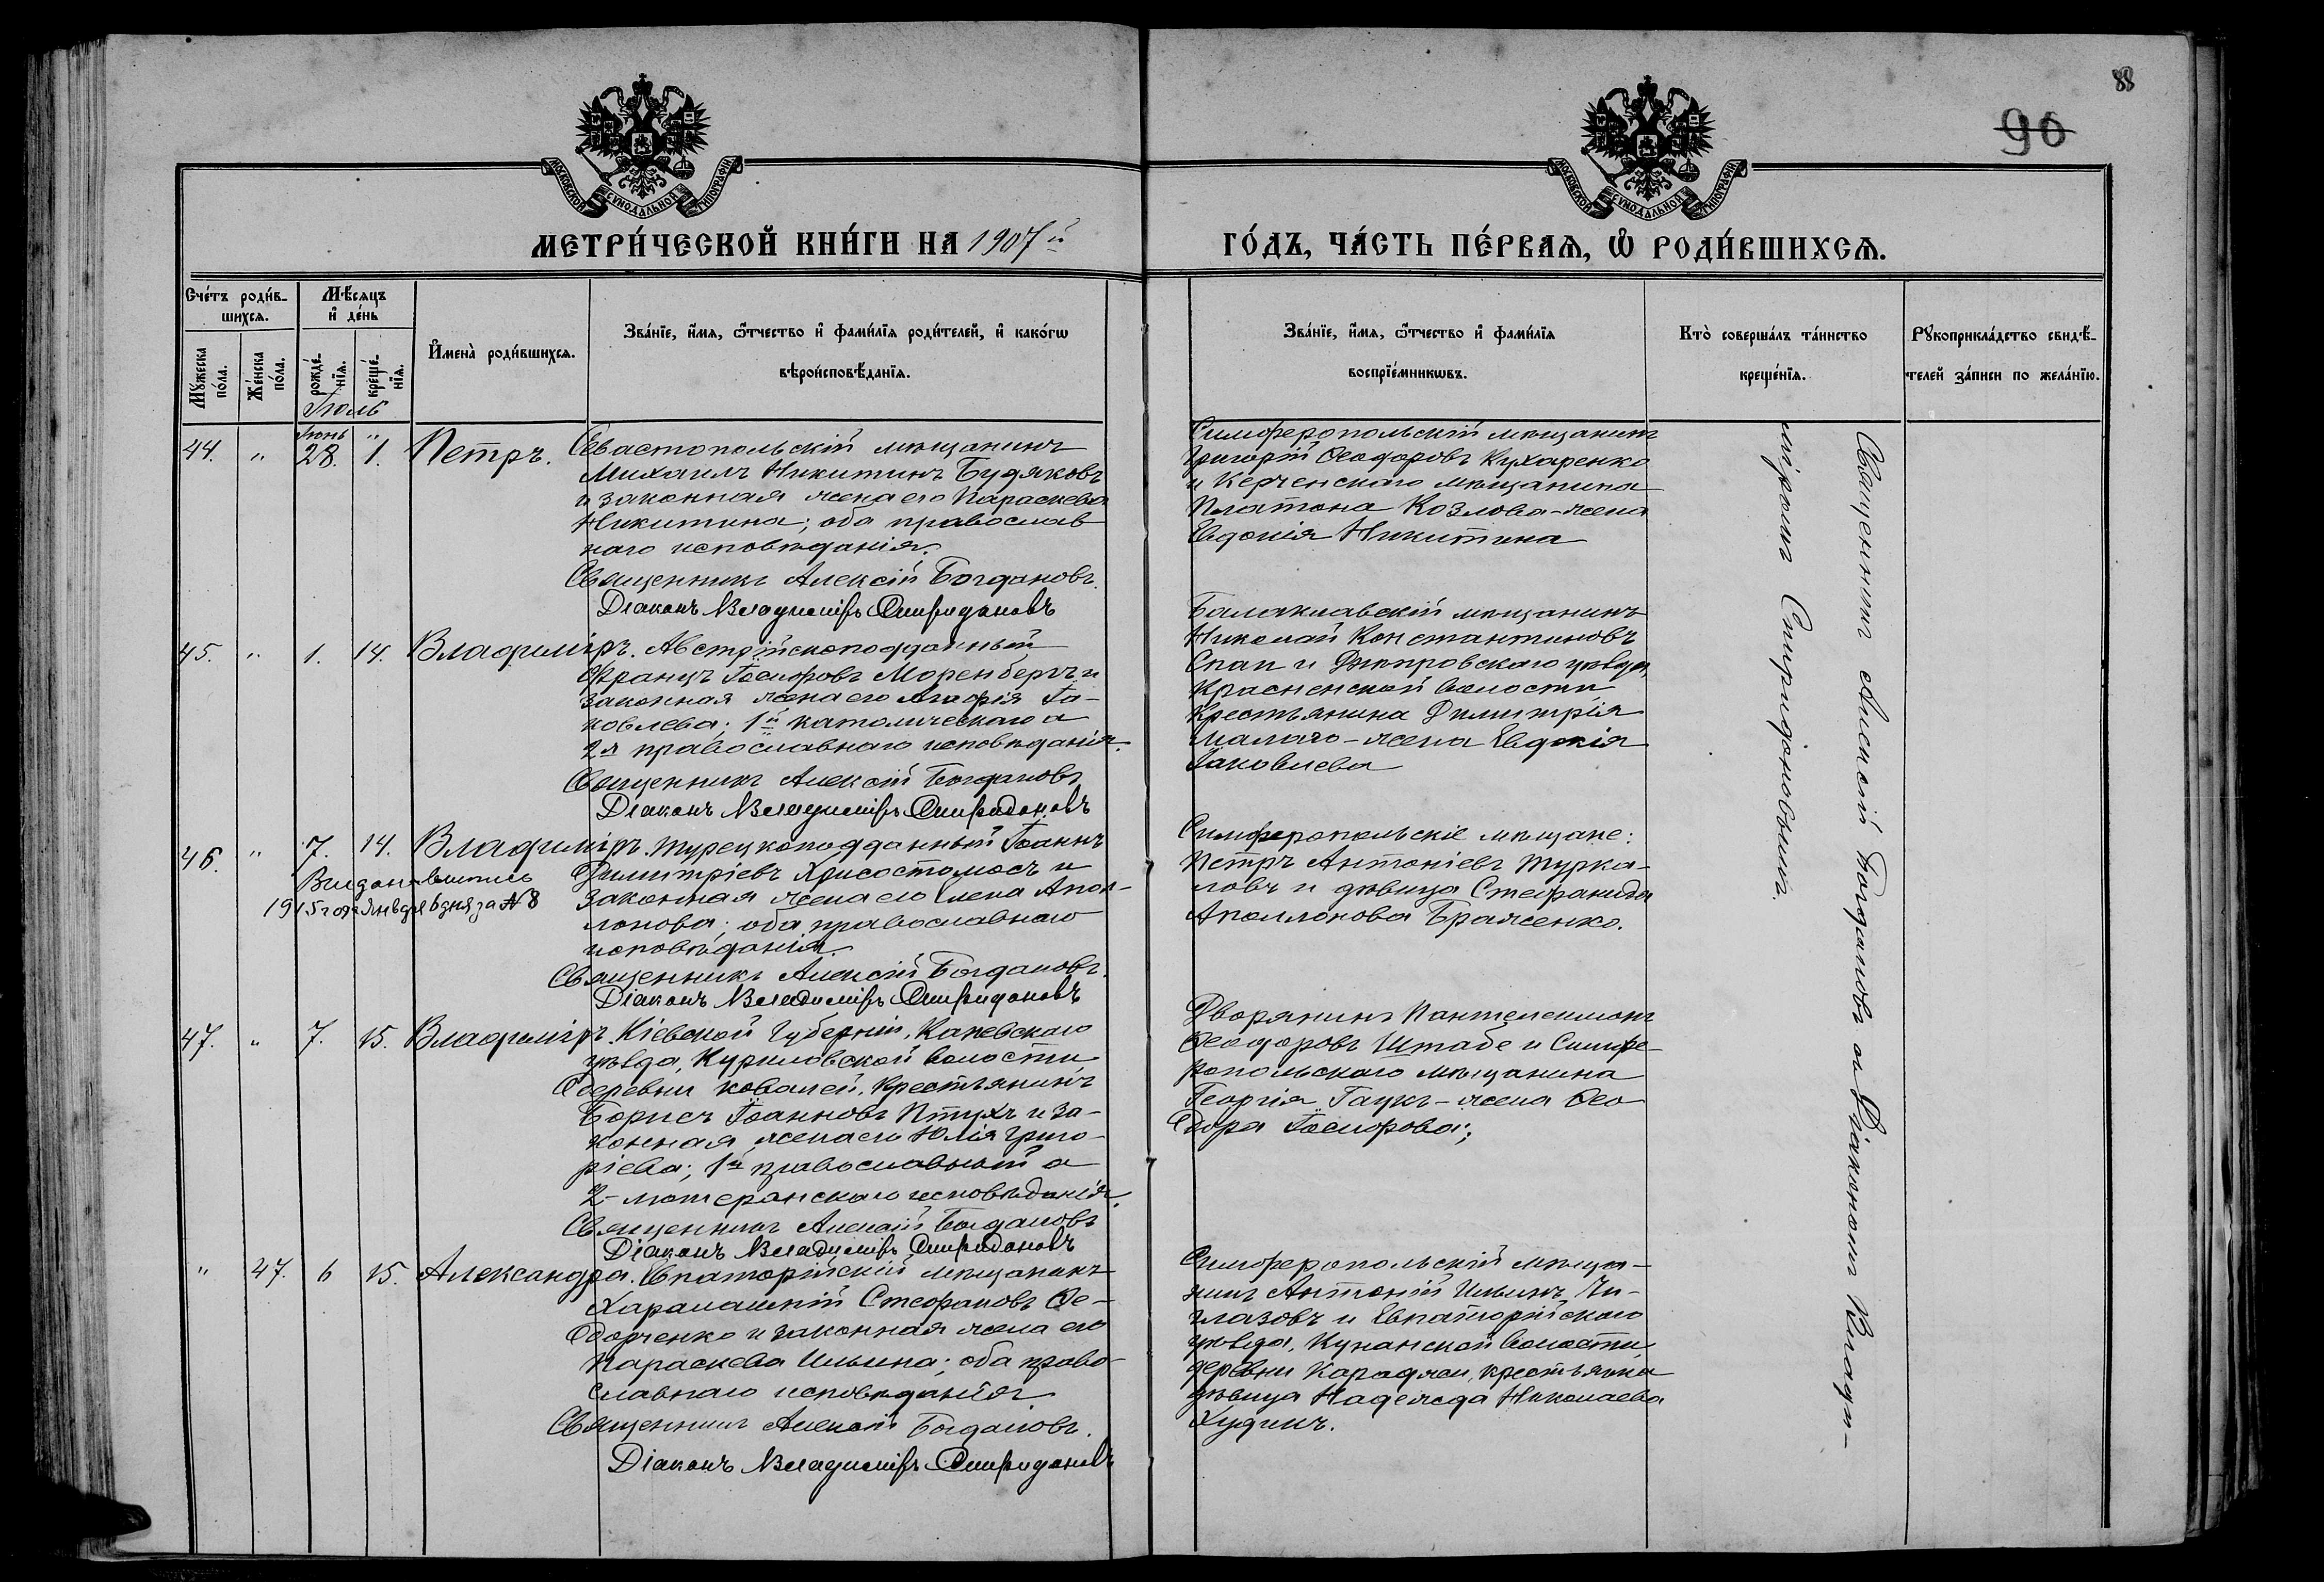 88
90
МОСКОВСКОЙ СѴНОДАЛЬНОЙ ТИПОГРАФІИ
МОСКОВСКОЙ СѴНОДАЛЬНОЙ ТИПОГРАФІИ
МЕТРИ́ЧЕСКОЙ КНИ́ГИ НА 1907й
ГО́ДЪ, ЧА́СТЬ ПЕ́РВАѦ, Ѡ҆ РОДИ́ВШИХСѦ.
Сче́тъ роди́в-
шихсѧ.
Мꙋ́жеска по́ла.
Же́нска по́ла.
Мѣ́сѧцъ
и҆ де́нь
рожде́-
нїѧ.
креще́-
нїѧ.
И҆мена̀ роди́вшихсѧ.
Зва́нїе, и҆́мѧ, ѻ҆́тчество и҆ фами́лїѧ роди́телей, и҆ како́гѡ
вѣроисповѣ́данїѧ.
Зва́нїе, и҆́мѧ, ѻ҆́тчество и҆ фами́лїѧ
воспрїе́мникѡвъ.
Кто̀ соверша́лъ та́инство
креще́нїѧ.
Рꙋкоприкла́дство свидѣ́-
телей за́писи по жела́нїю.
Іюль
44. " Іюнь 28. " 1. Петръ. Севастопольскій мѣщанинъ
Михаилъ Никитинъ Будяковъ
и законная жена его Параскева
Никитина; оба православ-
наго исповѣданія.
Священникъ Алексій Богдановъ.
Діаконъ Владиміръ Спиридоновъ
Симферопольскій мѣщанинъ
Григорій Ѳеодоровъ Кухаренко
и Керченскаго мѣщанина
Платона Козлова - жена
Евдокія Никитина
45. " 1. 14. Владиміръ. Австрійскоподданный
Францъ Іосифовъ Моренбергъ и
законная жена его Марія Іа-
ковлева; 1й католическаго а
2я православнаго исповѣданія.
Священникъ Алексій Богдановъ
Діаконъ Владиміръ Спиридоновъ
Балаклавскій мѣщанинъ
Николай Константиновъ
Спаи и Днѣпровскаго уѣзда,
Красненской волости
Крестьянина Димитрія
Малаго - жена Евдокія
Іаковлева
46. " 7. 14. Владиміръ. Турецкоподданный Іоаннъ
Димитріевъ Хрисостомосъ и
законная жена его Елена Апол-
лонова; оба православнаго
исповѣданія.
Выдана выпись
1915 года Января 6 дня за № 8
Священникъ Алексій Богдановъ.
Діаконъ Владиміръ Спиридоновъ
Симферопольскіе мѣщане:
Петръ Антоніевъ Турка-
ловъ и дѣвица Стефанида
Аполлонова Браженко.
47. " 7. 15. Владиміръ. Кіевской Губерніи, Каневскаго
уѣзда, Куриловской волости
деревни Ковалей, крестьянинъ
Борисъ Іоанновъ Птухъ и за-
конная жена его Юлія Григо-
ріева; 1й православный а
2- лютеранскаго исповѣданія.
Священникъ Алексій Богдановъ
Діаконъ Владиміръ Спиридоновъ
Дворянинъ Пантелеимонъ
Ѳеодоровъ Штабе и Симфе-
ропольскаго мѣщанина
Георгія Гаукъ - жена Ѳео-
дора Іосифова;
" 47. 6 15. Александра. Евпаторійскій мѣщанинъ
Харалампій Стефановъ Ѳе-
дорченко и законная жена его
Параскева Ильина; оба право-
славнаго исповѣданія
Священникъ Алексій Богдановъ.
Діаконъ Владиміръ Спиридоновъ
Симферопольскій мѣща-
нинъ Антоній Ильинъ
и Евпаторійскаго
уѣзда, волости,
деревни крестьянка
дѣвица Надежда Николаева
Худикъ.
Священникъ Алексій Богдановъ и Діаконъ Влади-
міромъ Спиридоновымъ.